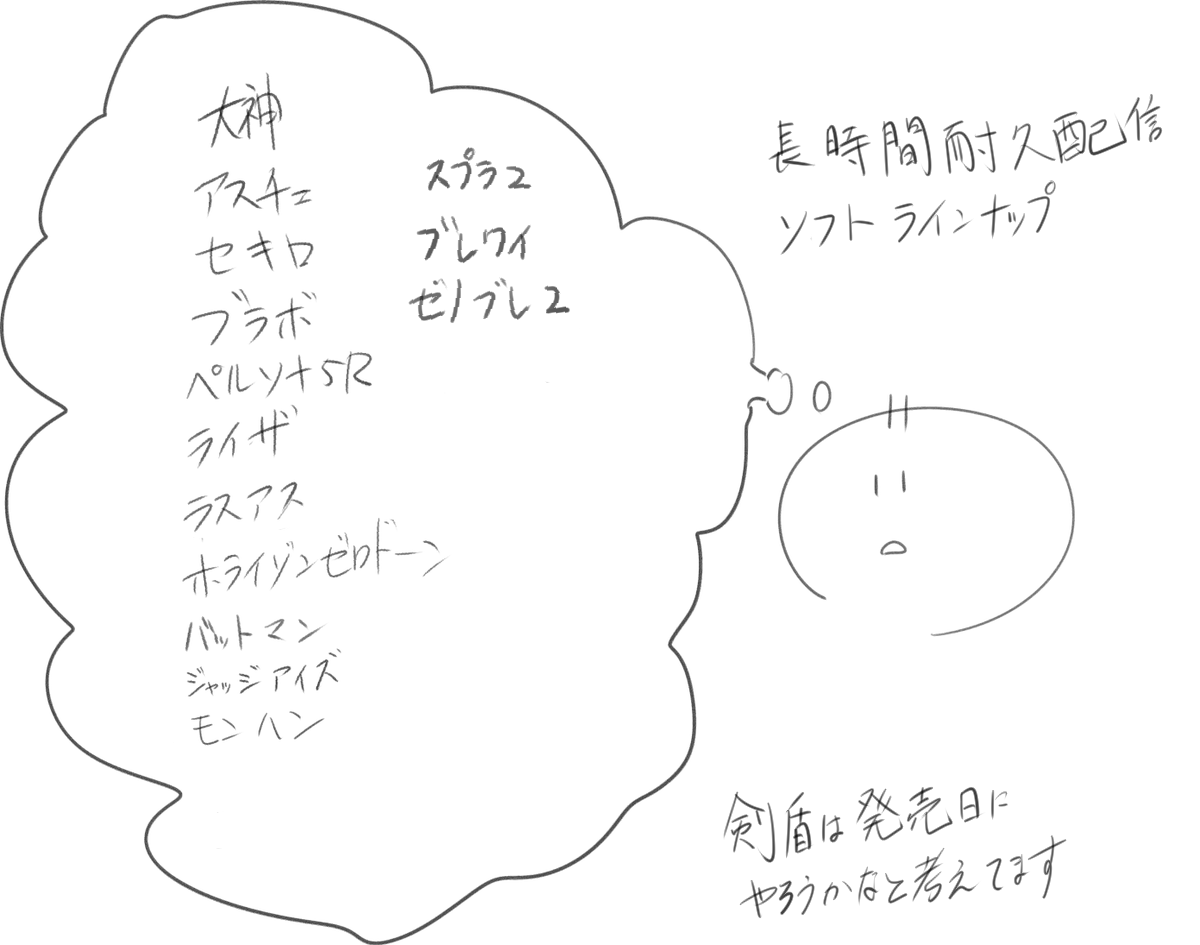 大神
アスチェ
セキロ
ブラボ
ペルソナ5R
ライザ
ラスアス
ホライゾンゼロドーン
バットマン
ジャッジアイズ
モンハン
スプラ2
ブレワイ
ゼノブレ2
長時間耐久配信
ソフトラインナップ
剣盾は発売日に
やろうかなと考えてます